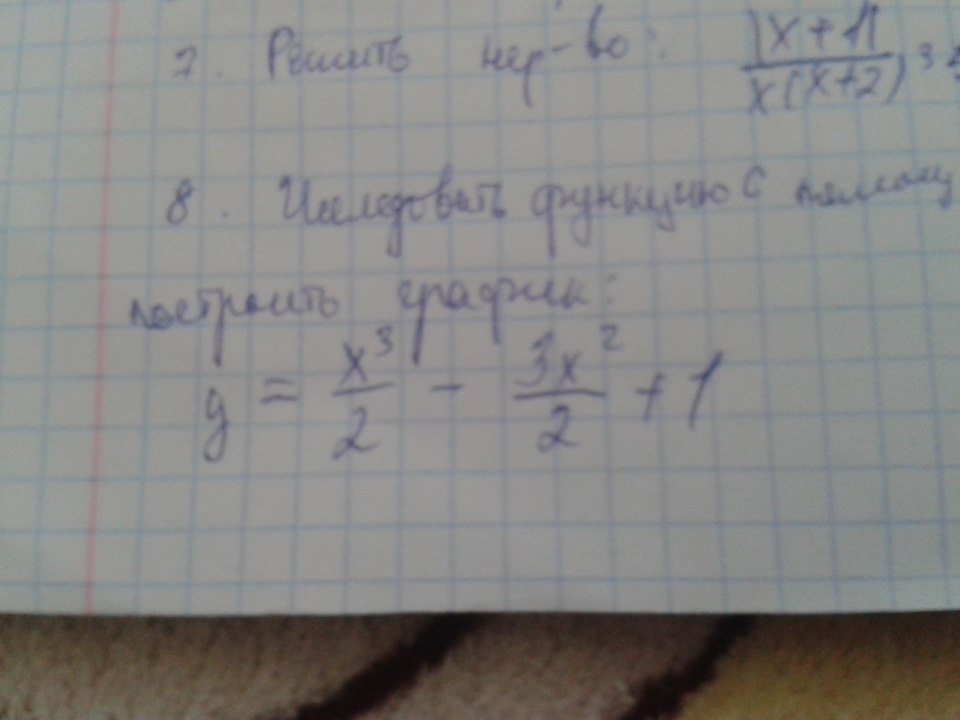 7. Решить нер-во: |x+1|/x(x+2)
8. Исследовать функцию с
построить график:
y = x³/2 - 3x²/2 + 1